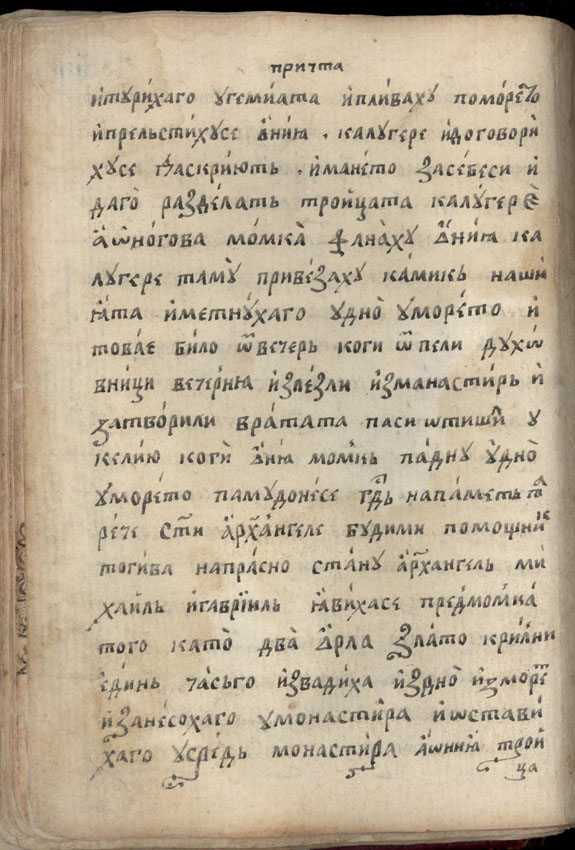 причта
и҆тури́хаго угеми́ата и҆пливаху поморето
и҆прельсти́хусе ѻ҆ни́ꙗ . калугере и҆договори
хусе даскрию́ть . и҆мане́то засебеси и҆
даго̀ разде́лать тро́ицата калу́гере
а҆ѡно́гова мо́мка̀ фана́ху ѻ҆ни́ꙗ ка
лугере таму̀ приве́заху ка́микь наши́
ꙗ҆та и҆метну́хаго удно̀ уморе́то и҆
товае било ѿвечерь коги ѿпели духо́
вници вечерни́ꙗ и҆зле́зли и҆зманасти́рь и҆
затво́рили врата́та паси ѡтиши́ и҆ у
кели́ю коги̇̀ ѻ҆ни́ꙗ момкь па́дну у҆дно̀
уморе́то паму́донесе гдь напа́меть та
рече сти а҆рха́нгеле будими помощни́к
тоги́ва напра́сно ста́ну а҆рха́нгель ми
хаи́ль и҆гаврїи́ль ꙗ҆ви́хасе предмо́мка
того като̀ два̀ ѻ҆рла зла́то кри́лни
еди́нь ча́сьго и҆звади́ха и҆здно̀ и҆зморе
и҆зане́сохаго умонасти́ра и҆ѡстави́
хаго усре́дь монасти́ра а҆ѡни́ꙗ трои
ца